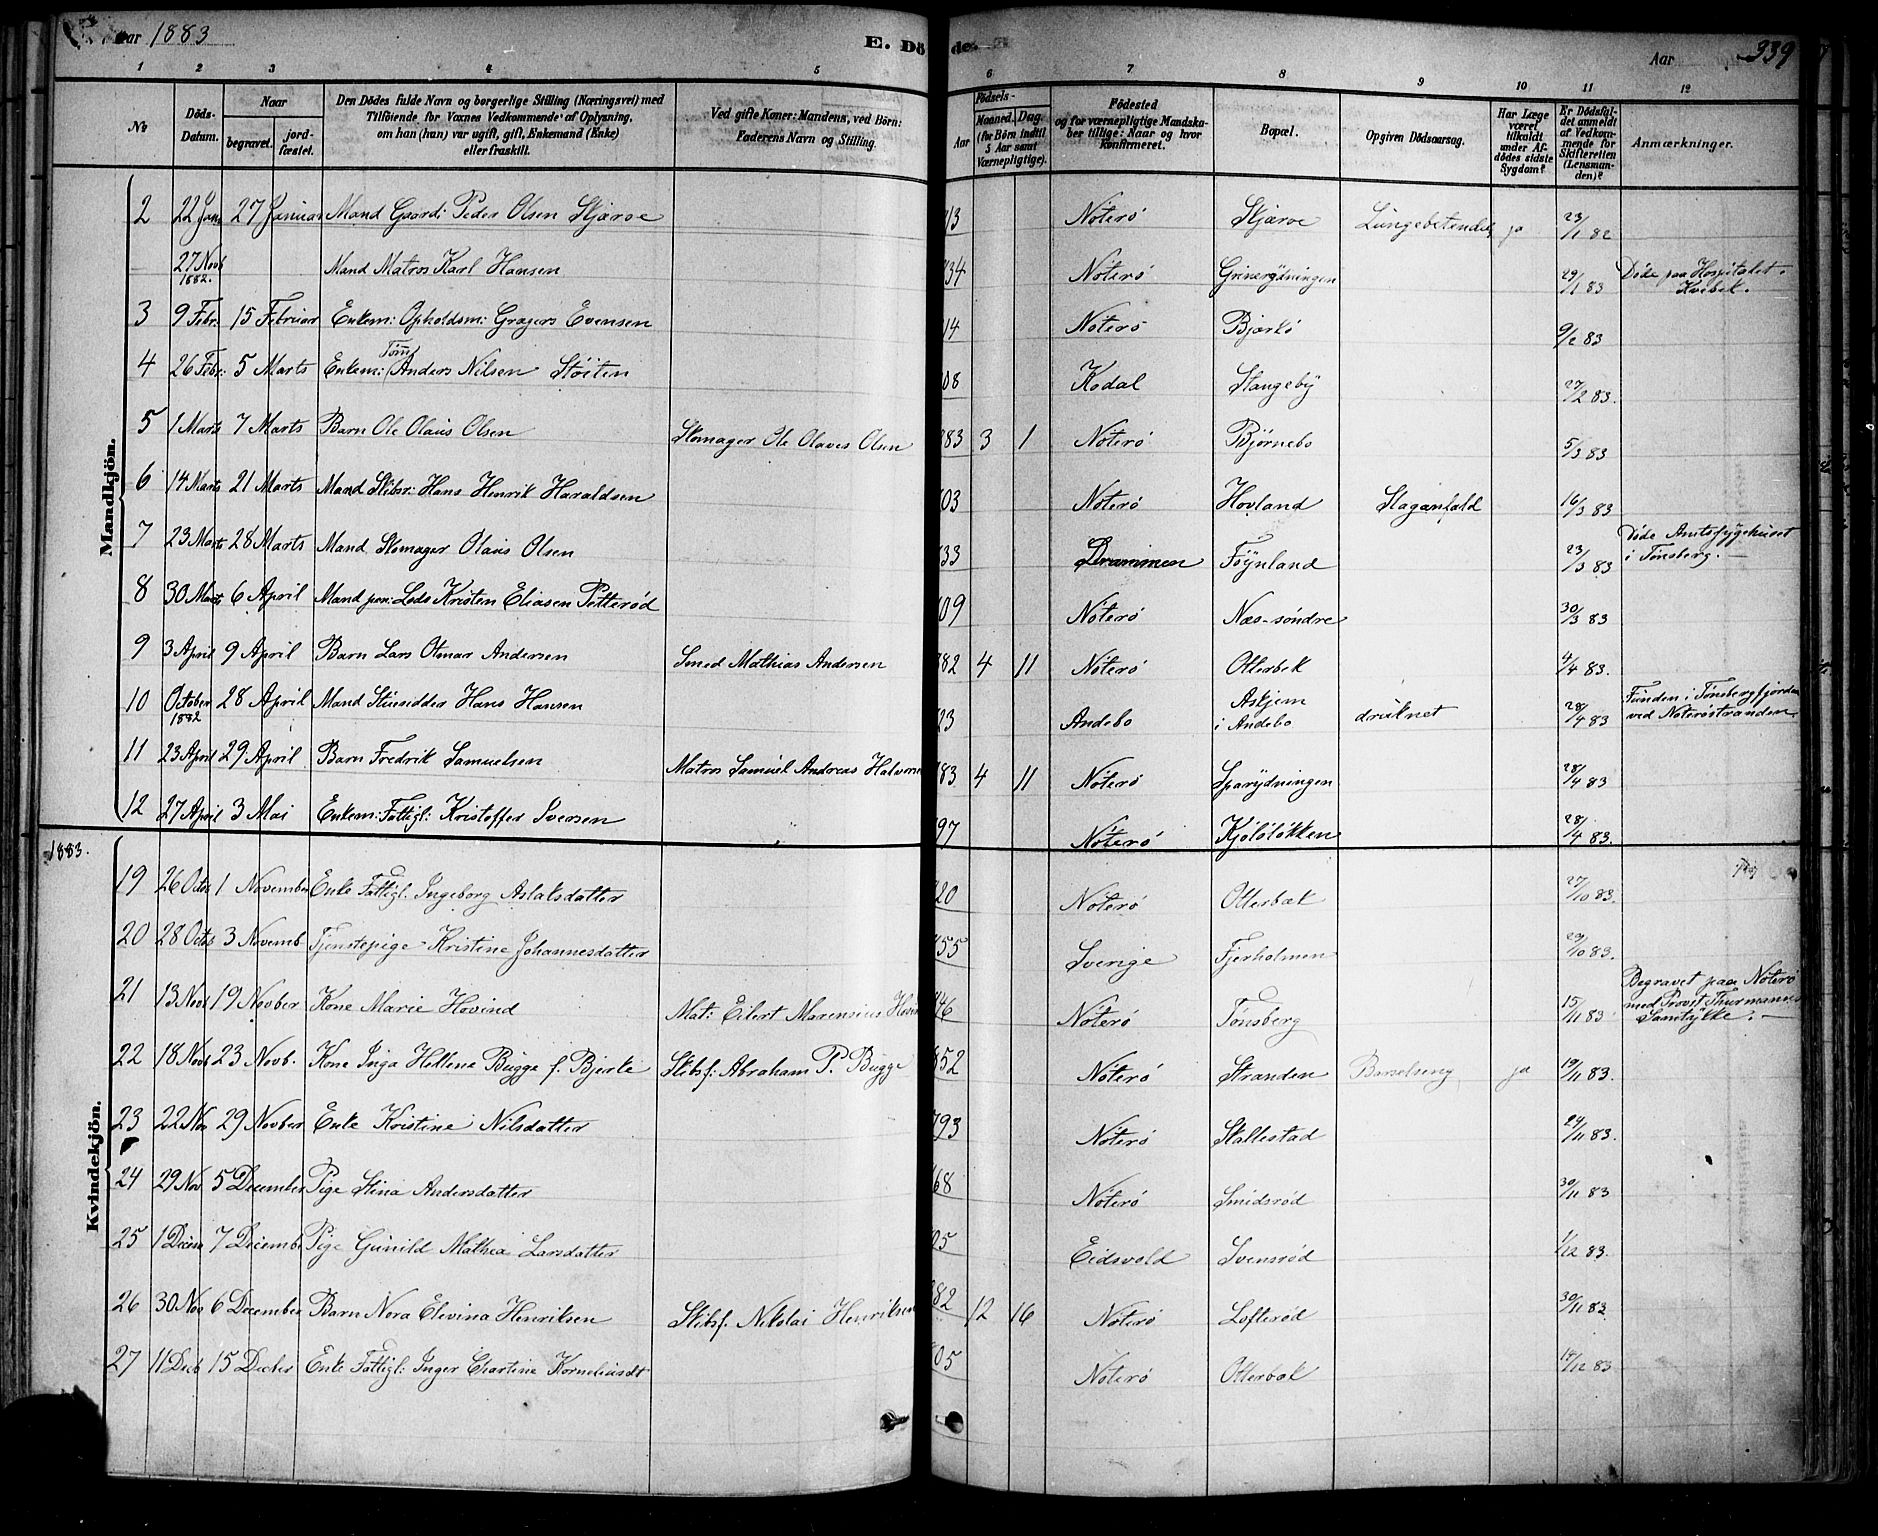 Aar 1883
E. Dö de.
Aar
339
1 2 3 4 5 6 7 8 9 10 11 12
No
Döds-Datum.
Naar
begravet.
jord-fæstet.
Den Dödes fulde Navn og borgerlige Stilling (Næringsvei) med
Tilföiende for Voxnes Vedkommende af Oplysning,
om han (hun) var ugift, gift, Enkemand (Enke)
eller fraskilt.
Ved gifte Koner: Mandens, ved Börn:
Faderens Navn og Stilling.
Födsels-
Aar
Maaned. Dag.
(for Börn indtil
5 Aar samt
Værnepligtige).
Födested
og for værnepligtige Mandska-
ber tillige: Naar og hvor
konfirmeret.
Bopæl.
Opgiven Dödsaarsag.
Har Læge
været
tilkaldt
under Af-
dödes sidste
Sygdom?
Er Dödsfal-
det anmeldt
af Vedkom-
mende for
Skifteretten
(Lensman-
den)?
Anmærkninger.
Mandkjön.
2 22 Jan 27 Januar Mand Gaardi: Peder Olsen Skjærve 13 Nöterö Skjærve Lungebetendels ja 23/1 82
27 Novb 1882. Mand Matros Karl Hansen 34 Nöterö Grinerydningen 29/1 83 Döde paa Hospitalet i
Kvebek.
3 9 Febr. 15 Februar Enkem: Opholdsm: Gragers Evensen 14 Nöterö Bjærkö 9/2 83
4 26 Febr: 5 Marts Enkem: Tömr Anders Nilsen Stöiten 08 Kodal Stangeby 27/2 83.
5 1 Marts 7 Marts Barn Ole Olaus Olsen Skomager Ole Olaves Olsen 83 3 1 Nöterö Björnebo 5/3 83
6 14 Marts 21 Marts Mand Skibsr: Hans Henrik Haraldsen 03 Nöterö Hovland Slaganfald 16/3 83
7 23 Marts 28 Marts Mand Skomager Olaus Olsen 33 Drammen Föynland 23/3 83 Döde Amtssygehuset
i Tönsberg.
8 30 Marts 6 April Mand pen: Lods Kristen Eliasen Petteröd 09 Nöterö Næs-söndre 30/3 83
9 3 April 9 April Barn Lars Otmar Andersen Smed Mathias Andersen 82 4 11 Nöterö Otterbek 4/4 83.
10 October 1882 28 April Mand Stuesidder Hans Hansen 23 Andebo Askjem
i Andebo druknet 28/4 83 Funden i Tönsbergfjorden
ved Nöteröstranden.
11 23 April 29 April Barn Fredrik Samuelsen Matros Samuel Andreas Halvorse 83 4 11 Nöterö Sparydningen 28/4 83
12 27 April 3 Mai Enkem: Fattigl: Kristoffer Iversen 97 Nöterö Kjölölökken 28/4 83.
1883.
Kvindekjön.
19 26 Octo 1 November Enke Fattigl. Ingeborg Aslaksdatter 20 Nöterö Otterbæk 27/10 83.
20 28 Octo 3 Novemb Tjenstepige Kristine Johannesdatter 55 Sverige Fjerholmen 29/10 83.
21 13 Novb 19 Novber Kone Marie Hovind Mat: Eilert Marensius Hovin 46 Nöterö Tönsberg 15/11 83 Begravet paa Nöterö
med Provst Thurmanns
Samtykke.
22 18 Novb 23 Novb. Kone Inga Hellene Bugge f. Bjerke Skibsf: Abraham P. Bugge 852 Nöterö Stranden Barselseng ja 19/11 83.
23 22 Nov 29 Novber Enke Kristine Nilsdatter 793 Nöterö Skallestad 24/11 83.
24 29 Nov 5 December Pige Stina Andersdatter 68 Nöterö Smidsröd 30/11 83
25 1 Decem 7 Decembe Pige Gunild Mathea Larsdatter 05 Eidsvold Svensröd 1/12 83.
26 30 Nov 6 December Barn Nora Elevina Henriksen Skibsf. Nikolai Henriksen 82 12 16 Nöterö Lofteröd 30/11 83
27 11 Decb 15 Decber Enke Fattigl: Inger Chartine Korneliusdt 05 Nöterö Otterbæk 14/12 83